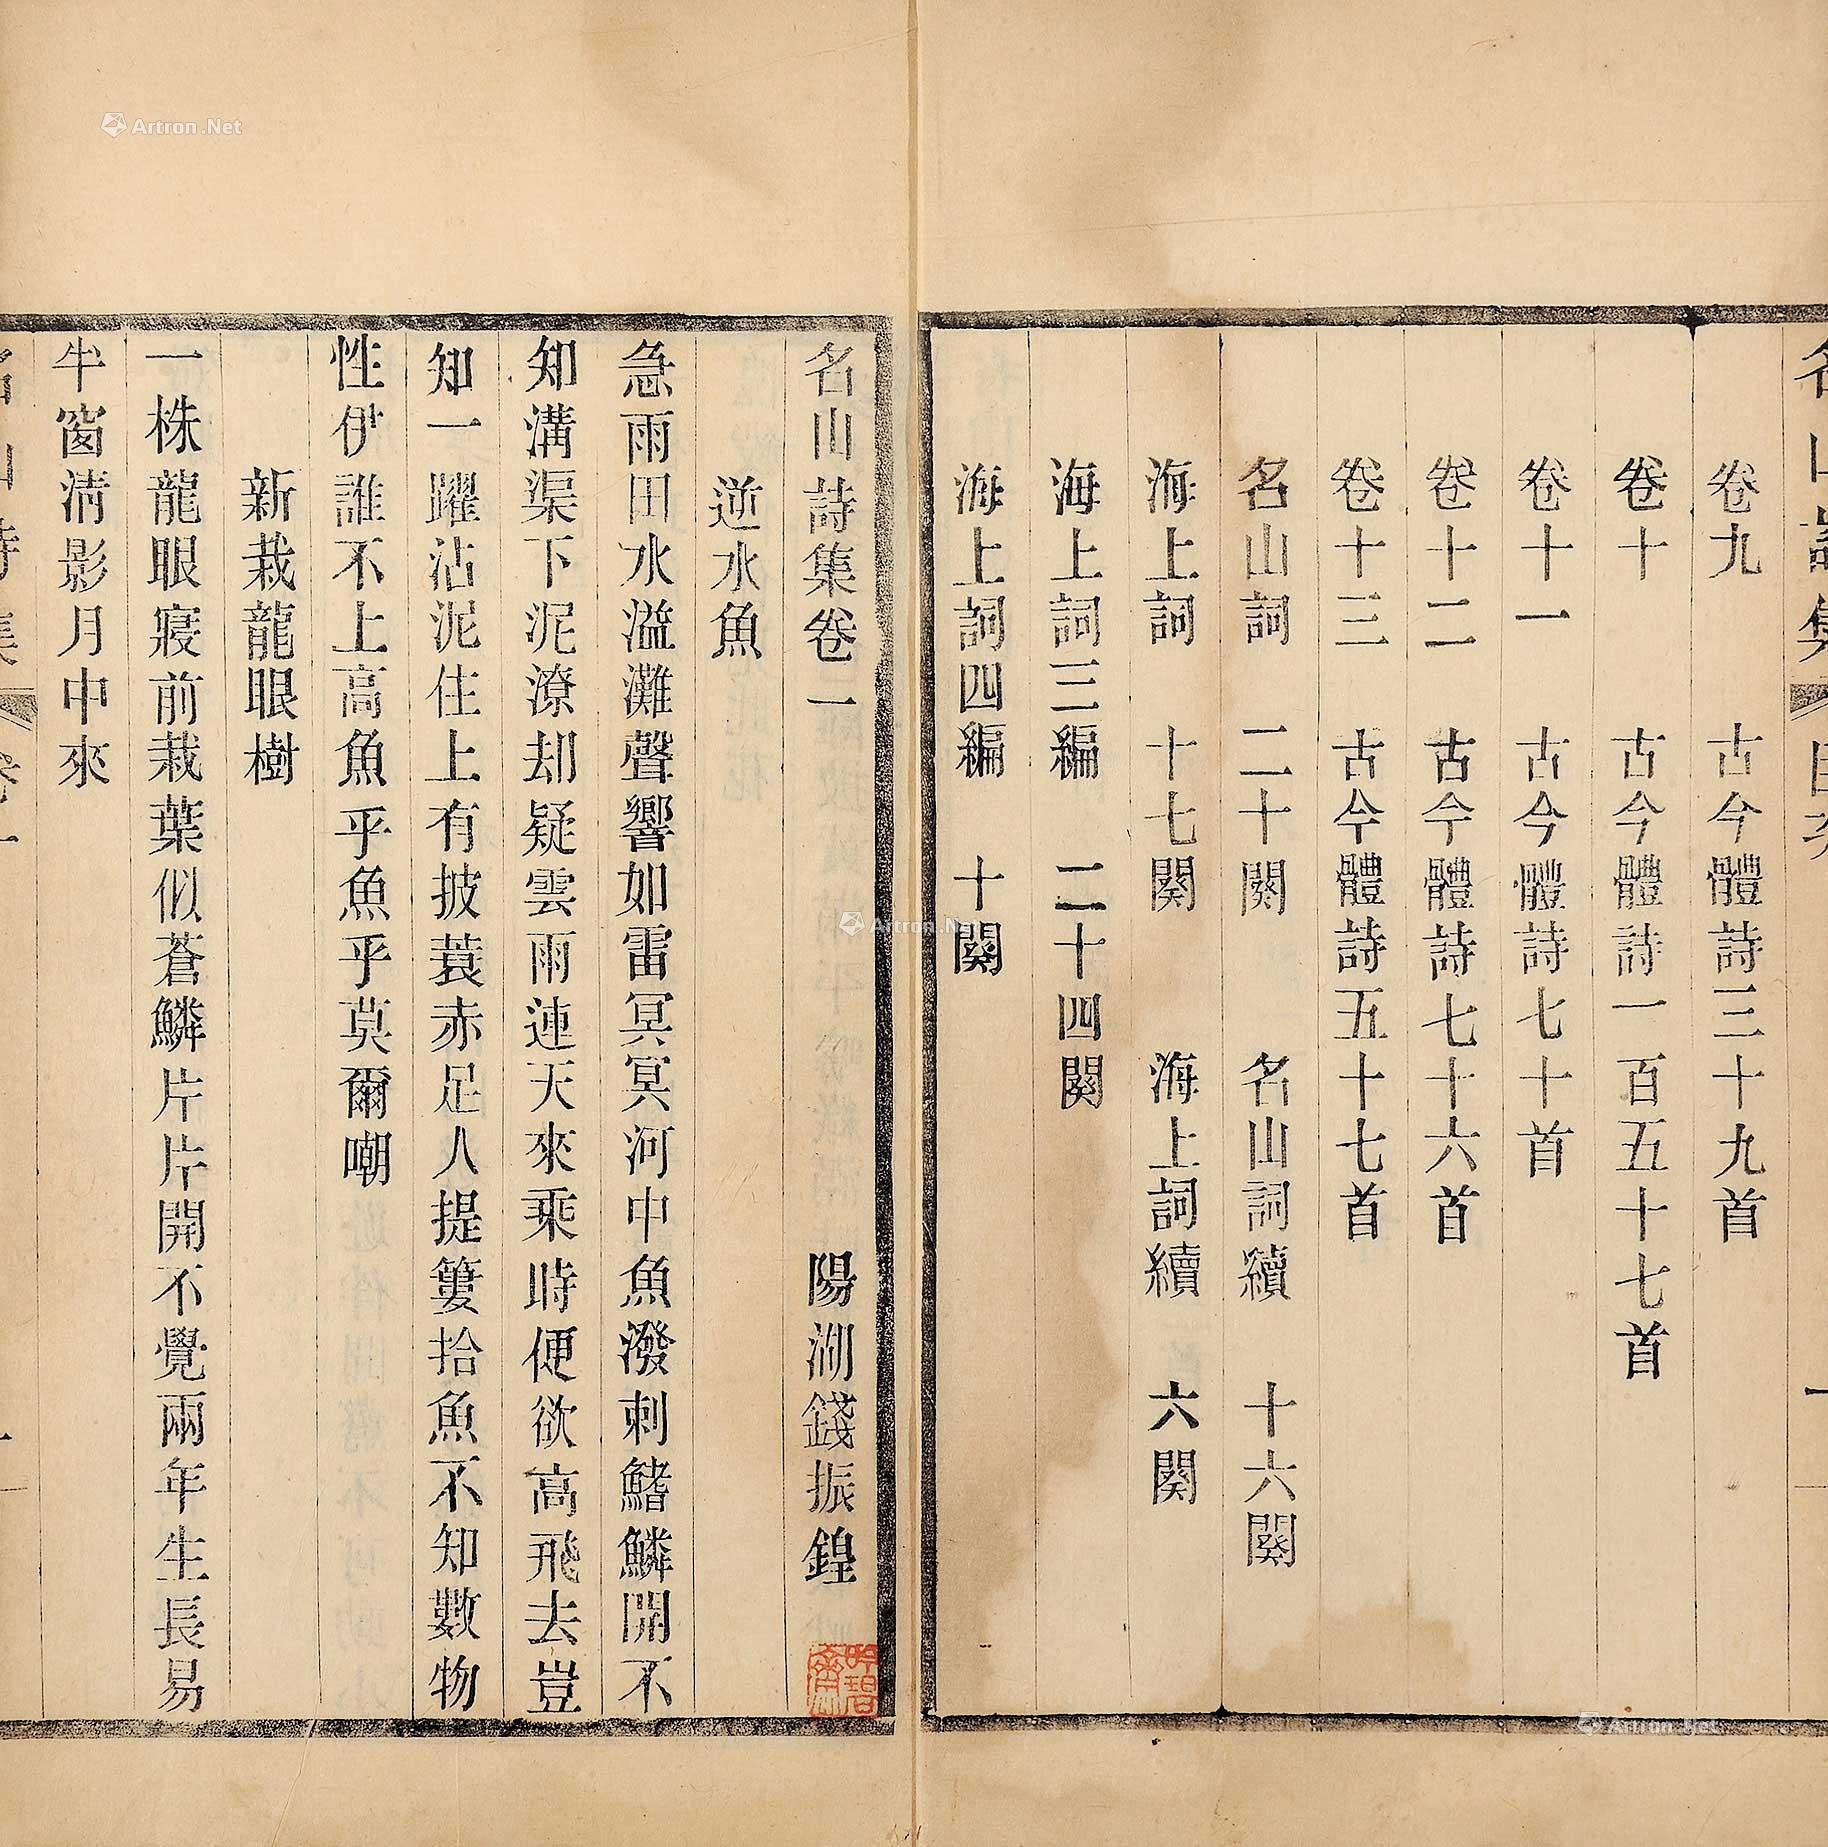 名山詩集 目次
卷九 古今體詩三十九首
卷十 古今體詩一百五十七首
卷十一 古今體詩七十首
卷十二 古今體詩七十六首
卷十三 古今體詩五十七首
名山詞 二十闋 名山詞續 十六闋
海上詞 十七闋 海上詞續 六闋
海上詞三編 二十四闋
海上詞四編 十闋
名山詩集卷一 陽湖錢振鍠
逆水魚
急雨田水溢灘聲響如雷冥冥河中魚潑剌鰭鱗開不
知溝渠下泥潦却疑雲雨連天來乘時便欲高飛去豈
知一躍沾泥住上有披蓑赤足人提簍拾魚不知數物
性伊誰不上高魚乎魚乎莫爾嘲
新栽龍眼樹
一株龍眼寢前栽葉似蒼鱗片片開不覺兩年生長易
半窗清影月中來
名山詩集 卷一
Artron.Net
Artron.Net
Artron.Net